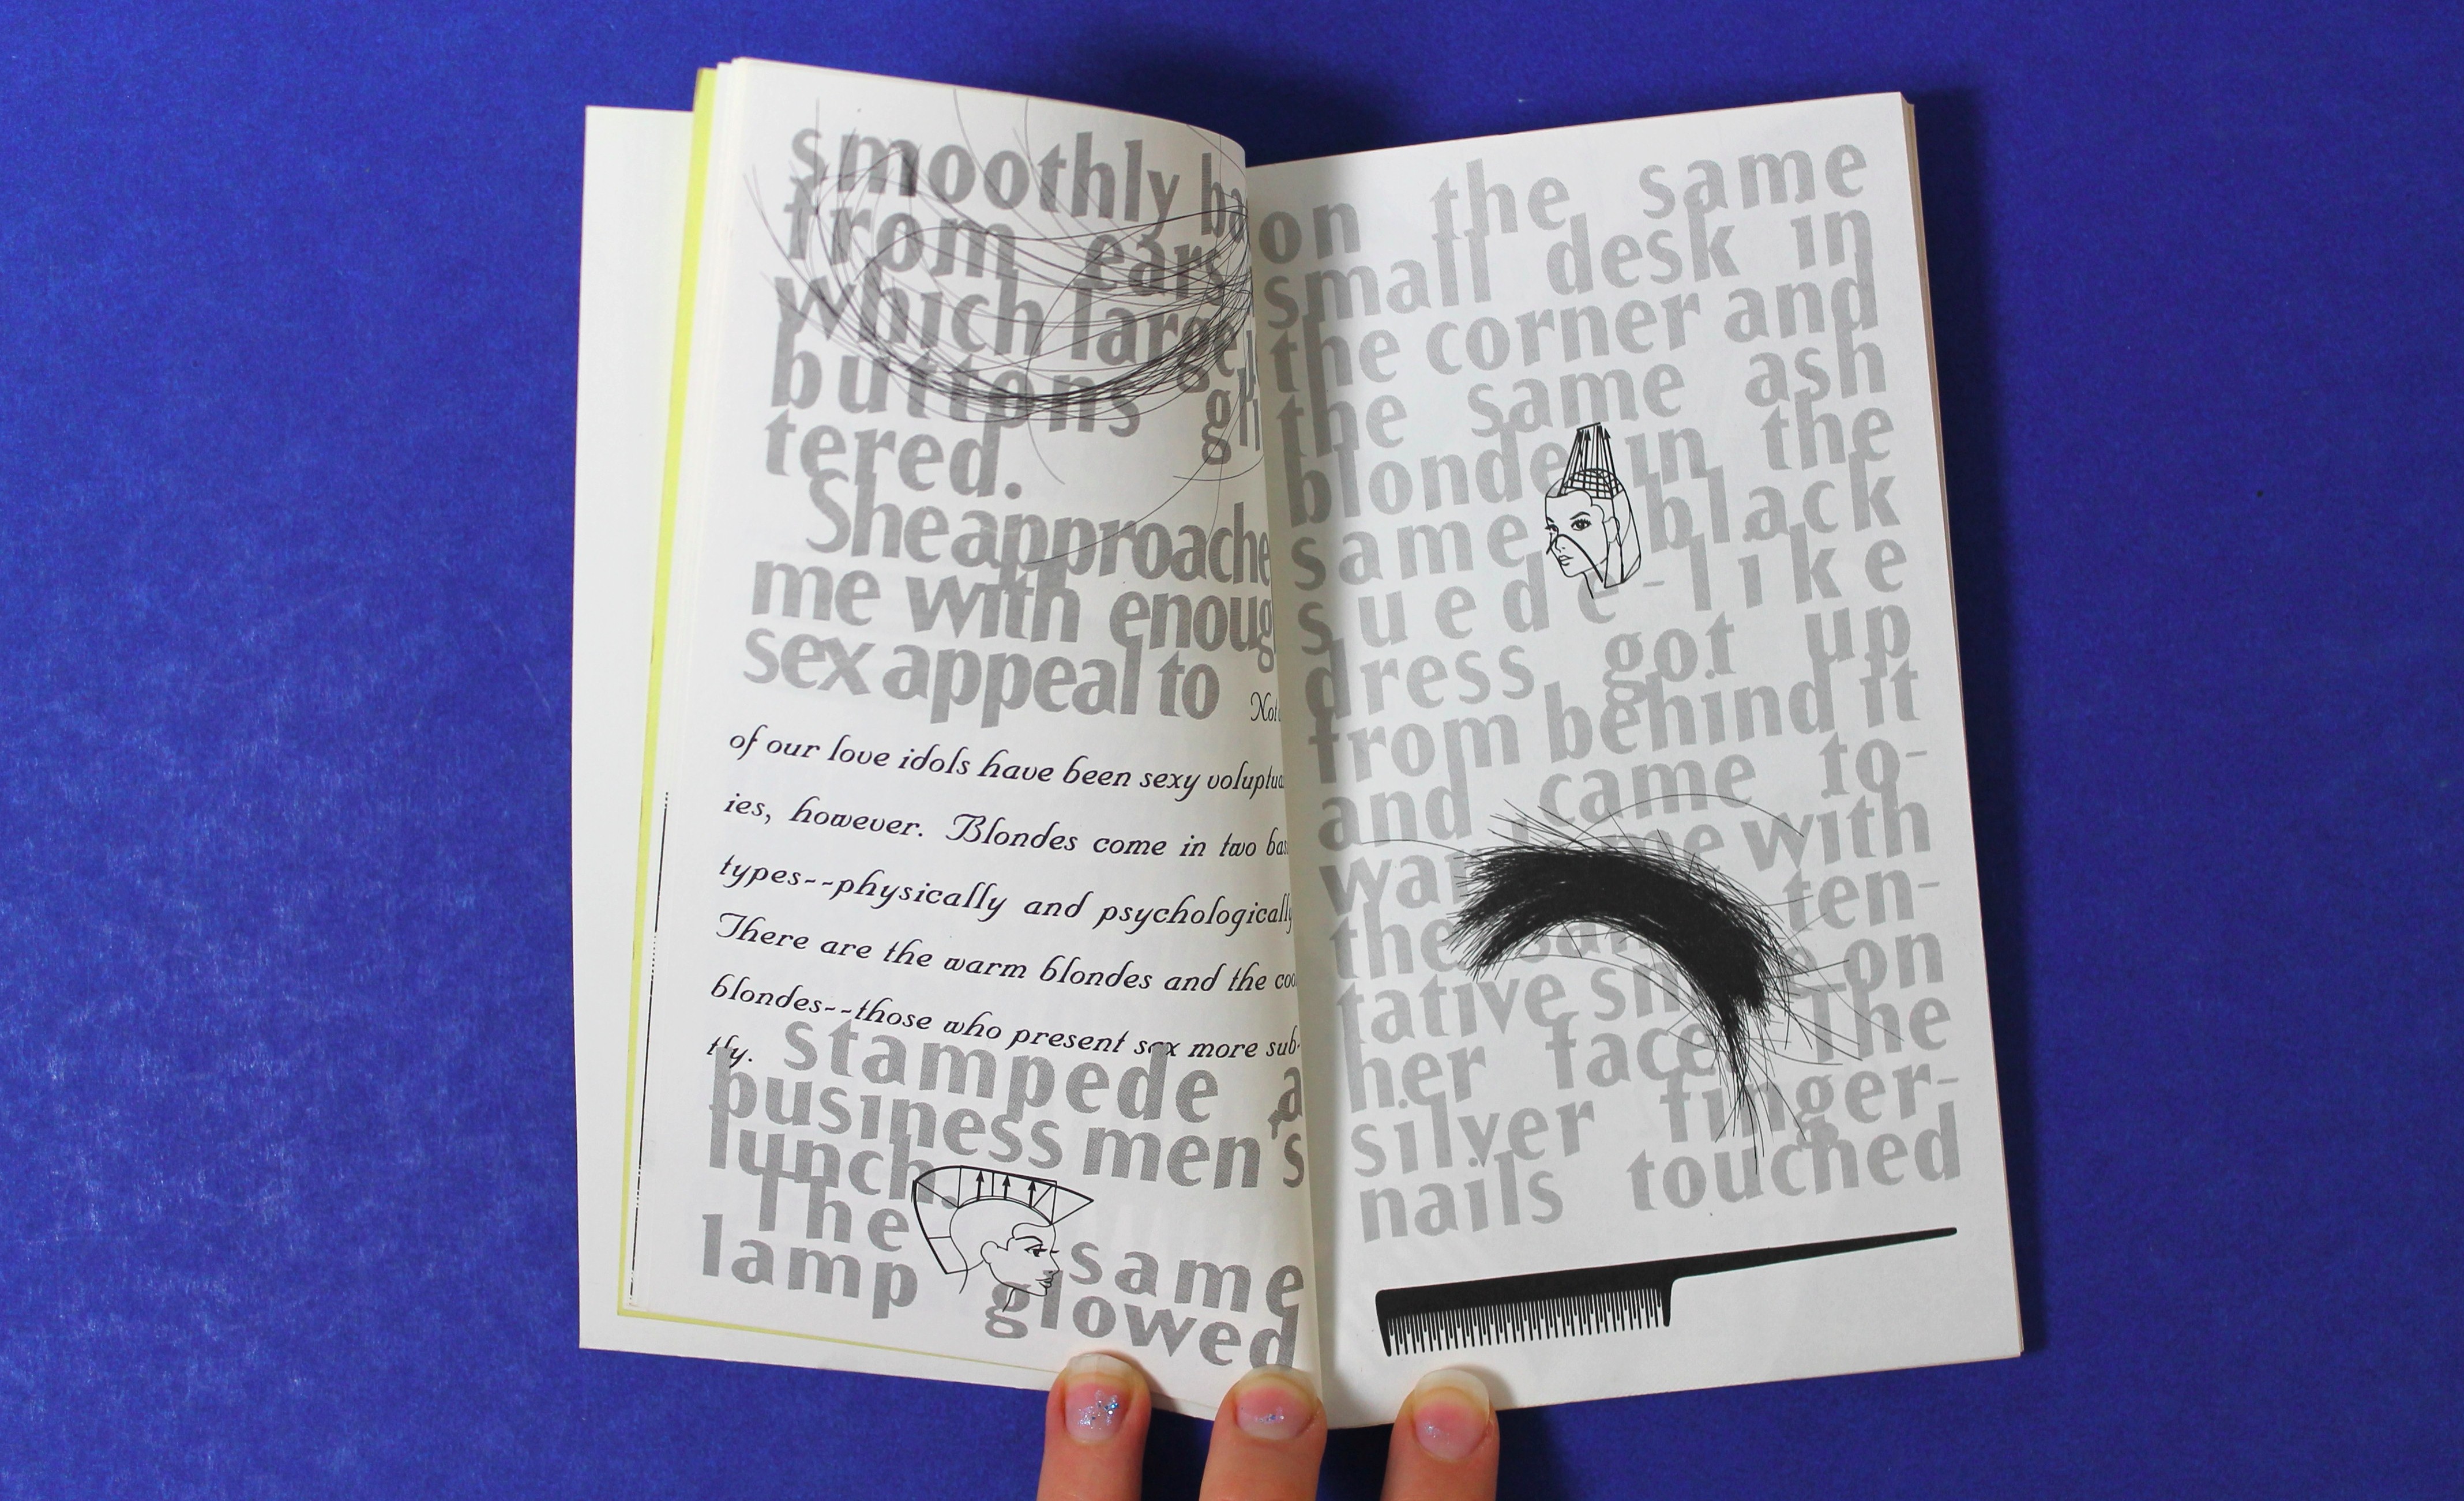 smoothly
from ears
which large
buttons
tered.
She
me with
sex appeal to
of our love idols have been sexy
ies, however. Blondes come in two
types--physically and psychologically
There are the warm blondes and the
blondes--those who present sex more sub-
tly. stampede a
business men's
lunch.
The same
lamp glowed
on the same
small desk in
the corner and
the same ash
blonde in the
same black
suede-like
dress got up
from behind it
and came to-
me with
the ten-
tative on
her face. The
silver finger-
nails touched